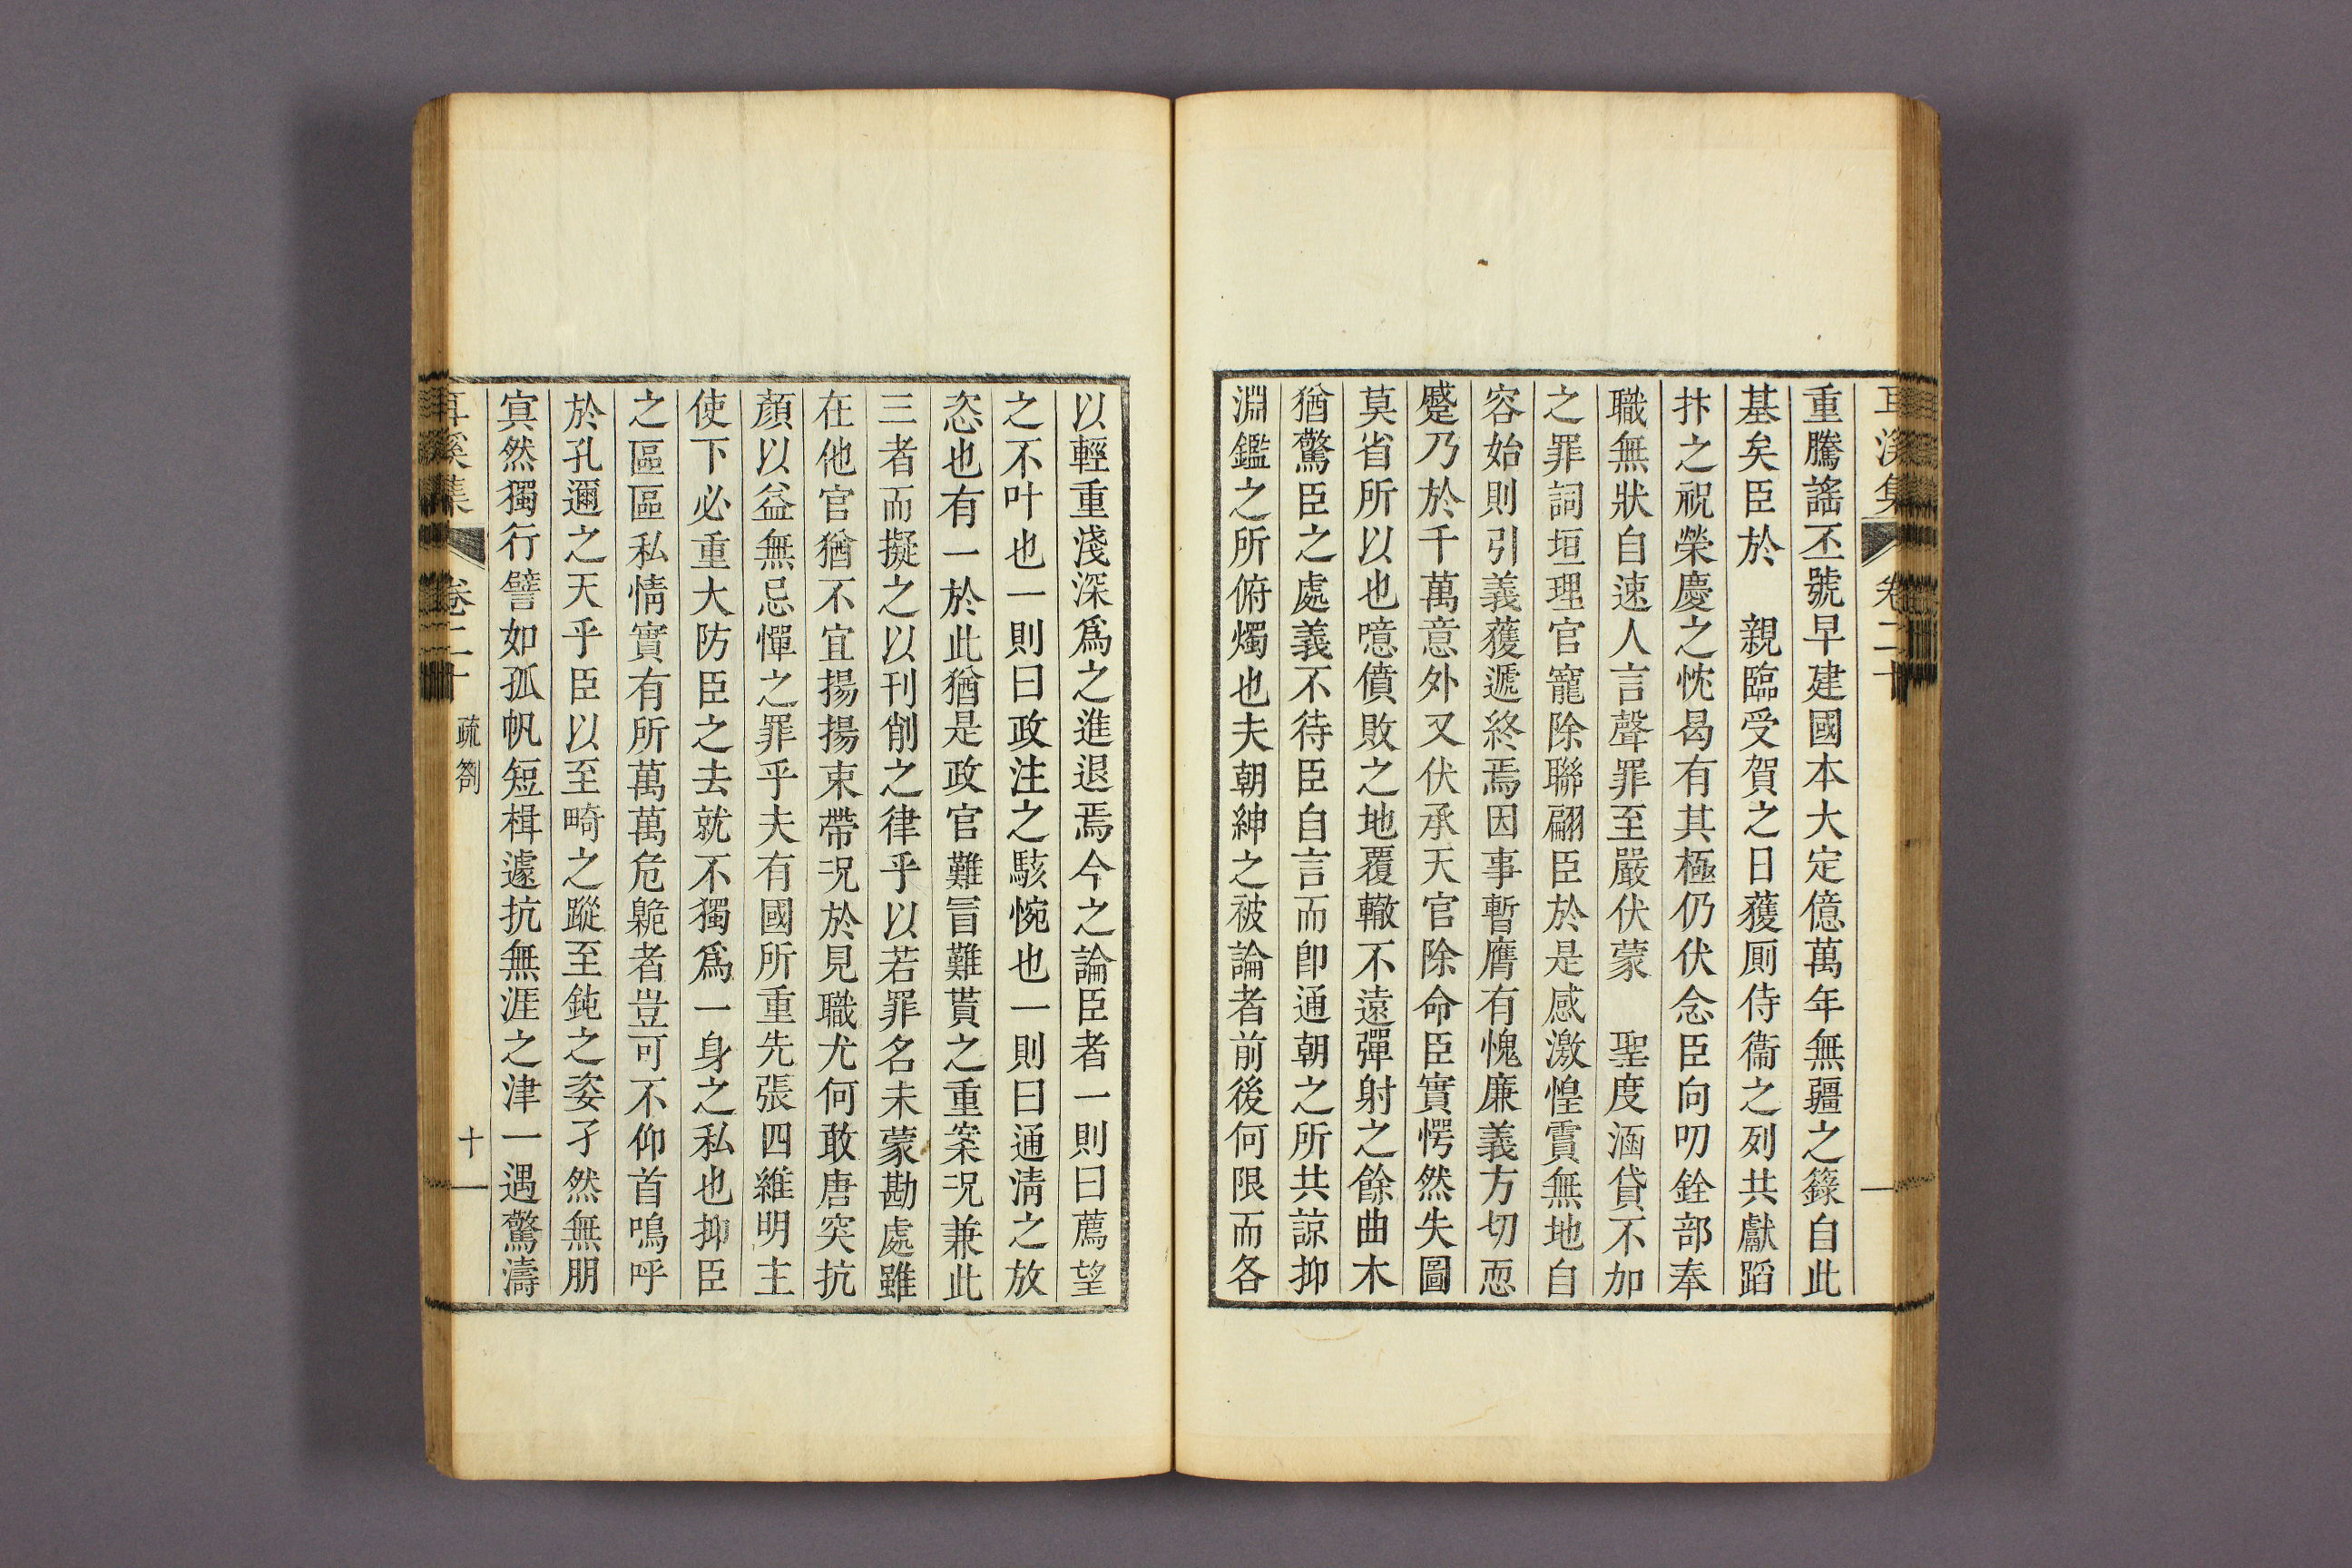 耳溪集 卷二十
重騰謠丕號早建國本大定億萬年無疆之籙自此
基矣臣於 親臨受賀之日獲厠侍衞之列共獻蹈
抃之祝榮慶之忱曷有其極仍伏念臣向叨銓部奉
職無狀自速人言聲罪至嚴伏蒙 聖度涵貸不加
之罪詞垣理官寵除聯翩臣於是感激惶霣無地自
容始則引義獲遞終焉因事暫膺有愧廉義方切恧
蹙乃於千萬意外又伏承天官除命臣實愕然失圖
莫省所以也噫僨敗之地覆轍不遠彈射之餘曲木
猶驚臣之處義不待臣自言而卽通朝之所共諒抑
淵鑑之所俯燭也夫朝紳之被論者前後何限而各
以輕重淺深爲之進退焉今之論臣者一則曰薦望
之不叶也一則曰政注之駭惋也一則曰通淸之放
恣也有一於此猶是政官難冒難貰之重案况兼此
三者而擬之以刊削之律乎以若罪名未蒙勘處雖
在他官猶不宜揚揚束帶况於見職尤何敢唐突抗
顏以益無忌憚之罪乎夫有國所重先張四維明主
使下必重大防臣之去就不獨爲一身之私也抑臣
之區區私情實有所萬萬危臲者豈可不仰首鳴呼
於孔邇之天乎臣以至畸之蹤至鈍之姿孑然無朋
寘然獨行譬如孤帆短楫遽抗無涯之津一遇驚濤
耳溪集 卷二十 疏箚 十一